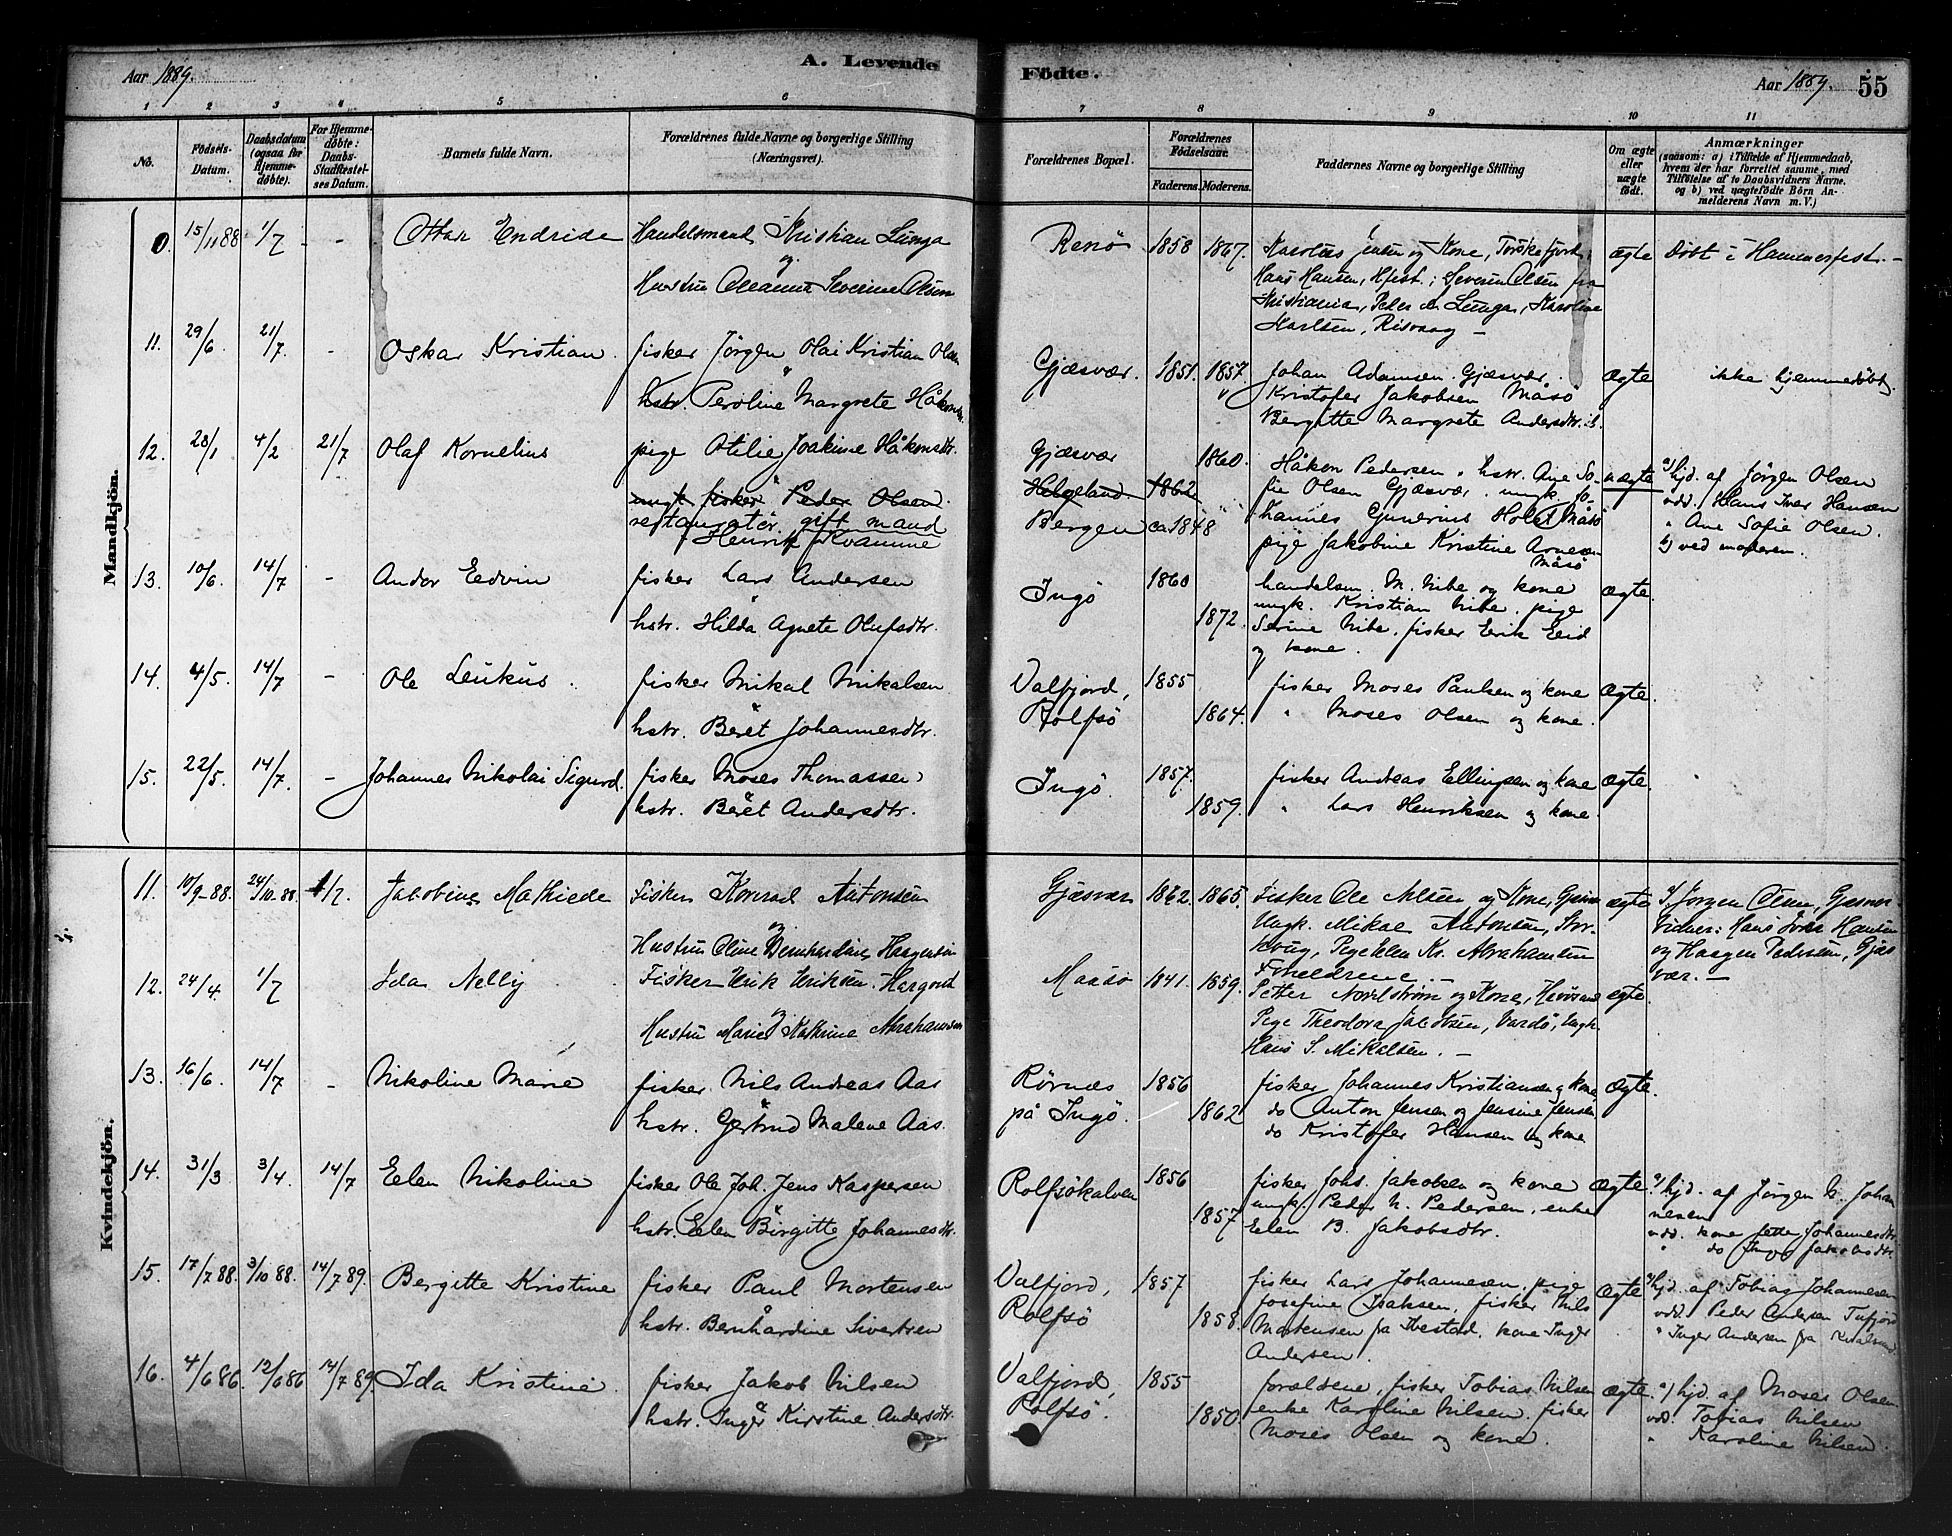 Aar 1889. A. Levende
Födte. Aar 1889. 55
1 2 3 4 5 6 7 8 9 10 11
No. Födsels-Datum. Daabsdatum (ogsaa for Hjemme-döbte). For Hjemme-döbte: Daabs-Stadfæstel-ses Datum. Barnets fulde Navn. Forældrenes fulde Navne og borgerlige Stilling (Næringsvei).
Forældrenes Bopæl. Forældrenes Födselsaar. Faderens. Moderens. Faddernes Navne og borgerlige Stilling Om ægte eller uægte födt. Anmærkninger (saasom: a) i Tilfælde af Hjemmedaab, hvem der har forrettet samme, med Tilföielse af to Daabsvidners Navne, og b) ved uægtefödte Börn An-melderens Navn m. V.)
Mandkjön.
0. 15/11 88 1/7 - - Ottar Endride Handelsmand Kristian Lunga
og
Hustru Oleanna Severine Olsen
Renö 1858 1867. Jensen og Kone, Torskefjord,
Hans Hansen, Hfest.; Severin Olsen fra
Kristiania, Peder Lunga, Karoline
Karlsen, Risvaag -
ægte Döbt i Hammerfest. -
11. 29/6. 21/7. - Oskar Kristian. fisker Jörgen Olai Kristian Olsen
hstr. Peroline Margrete
Gjæsvær. 1851. 1857. Johan Adamsen. Gjæsvær.
" Kristofer Jakobsen Måsö
Bergitte Margrete Andersdtr. ib.
ægte ikke hjemmedöbt
12. 28/1 4/2 21/7 Olaf Kornelius pige Otilie Joakime Håkonsdtr.
ungk. fisker Peder Olsen.
restauratör, gift mand
Henrik Kvamme
Gjæsvær 1860.
Helgeland. 1862
Bergen ca 1848
Håkon Pedersen, hstr. Ane So-
fie Olsen Gjæsvær. ungk. Jo-
hannes Gunerius Holst Måsö
pige Jakobine Kristine Arnesen
Måsö
uægte a) hjd. af Jörgen Olsen
vdd. Hans Iver Hansen
" Ane Sofie Olsen.
b) ved moderen.
13. 10/6. 14/7 - Andor Eedvin fisker Lars Andersen
hstr. Hilda Agnete Olufsdtr.
Ingö 1860 1872. handelsm. M. Nibe og kone
ungk. Kristian Nibe. pige
Serine Nibe. fisker Eerik Eeid
og kone.
ægte.
14. 4/5. 14/7 - Ole Leukus. fisker Mikal Mikalsen
hstr. Beret Johannesdtr.
Valfjord, Rolfsö 1855 1864. fisker Moses Paulsen og kone
" Moses Olsen og kone.
ægte.
15. 22/5. 14/7. - Johannes Nikolai Sigurd. fisker Moses Thomassen
hstr. Beret Andersdtr.
Ingö. 1857. 1859. fisker Andreas Ellingsen og kone
" Lars Henriksen og kone.
ægte.
Kvindekjön.
11. 10/9-88. 24/10-88. 1/7. Jakobine Mathilde Fisker Konrad Antonsen
og
Hustru Oline Bernhardine
Gjæsvær 1862. 1865. Fisker Ole Nilsen og Kone,
Ungk. Mikal Antonsen,
Pige Elen Kr. Abrahamsen
Forældrene
ægte Jörgen Olsen,
Vidner: Hans Iver Hansen
og Haagen Pedersen, Gjæs
vær. -
12. 24/4. 1/7 Ida Nelly Fisker Erik Eriksen.
og
Hustru Marie Kathrine Abrahamsen
Maasö 1841. 1859. Petter Nordström og Kone,
Pige Theodora Jakobsen, Vardö, Ungk.
Hans S. Mikalsen. -
ægte.
13. 16/6. 14/7 - Nikoline Marie fisker Nils Andreas Aas
hstr. Gjertrud Malene Aas.
Rörnæs på Ingö. 1856 1862 fisker Johannes Kristiansen og kone
do Anton Jensen og Jensine Jensen
do Kristofer Hansen og kone
ægte.
14. 31/3 3/4. 14/7 Eelen Nikoline fisker Ole Joh. Jens Kaspersen
hstr. Eelen Birgitte Johannesdtr.
Rolfsökalven 1856 1857 fisker Johs. Jakobsen og kone
ungk. Peder N. Pedersen, enke
Eelen B. Jakobsdtr.
ægte a) hjd. af Jörgen N. Johan
nesen
vdd. kone Jette Johannesdtr
" do Jakobsdtr.
15. 17/7 88. 3/10 88. 14/7 89. Bergitte Kristine fisker Paul Mortensen
hstr. Bernhardine Sivertsen
Valfjord, Rolfsö 1857 1858. fisker Lars Johannesen, pige
Josefine Isaksen, fisker Nils
Mortensen fra Ibestad, kone Inger
Andersen.
ægte a) hjd. af Tobias Johannesen
vdd. Peder Andersen Tufjord
" Inger Andersen fra Kvalsund.
16. 4/6 86. 12/6 86 14/7 89. Ida Kristine. fisker Jakob Nilsen
hstr. Inger Kirstine Andersdtr.
Valfjord, Rolfsö. 1855 1850. forældrene, fisker Tobias Nilsen
enke Karoline Nilsen. fisker
Moses Olsen og kone.
ægte. a) hjd. af Moses Olsen
vdd. Tobias Nilsen
" Karoline Nilsen.